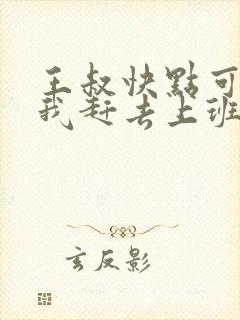 王叔快點可
我赶去上班
玄反影